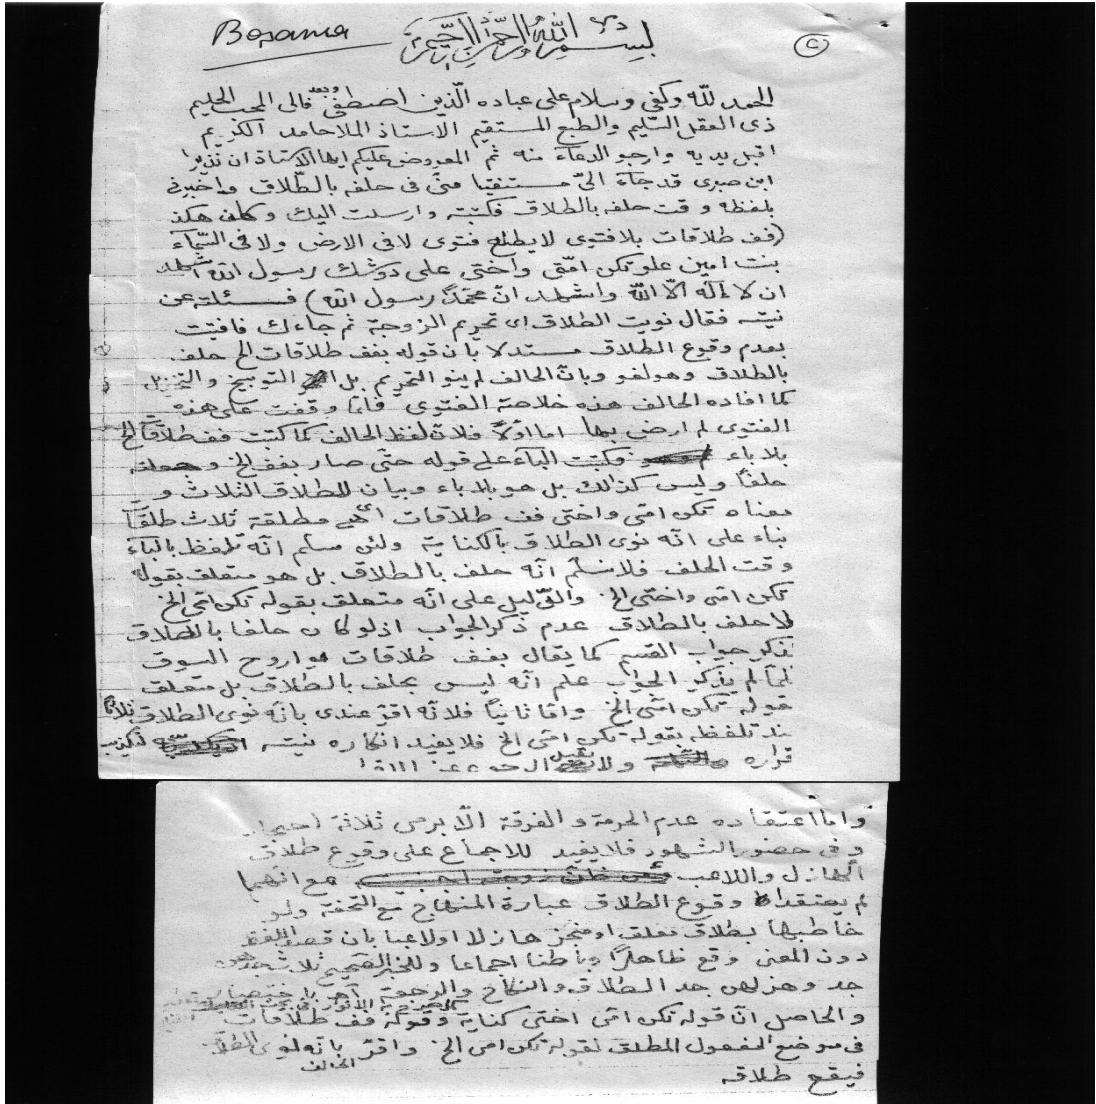 Bosana
بسم الله الرحمن الرحيم
الحمد لله وكفى وسلام على عباده الذين اصطفى وبعد فالى المحب الحليم
ذى العقل السليم والطبع المستقيم الاستاذ الملا حامد الكريم
اقبل يديه وارجو الدعاء منه ثم المعروض عليكم ايها الاستاذ ان نذيرا
ابن صبرى قد جاء الىّ مستفتيا منى فى حلفه بالطلاق واخبرنى
بلفظه وقت حلفه بالطلاق فكتبته وارسلت اليك وكان هكذ
(فف طلاقات بلا فتوى لا يطلع فتوى لا فى الارض ولا فى السماء
بنت امين علو تكن امّى واختى على دوشك رسول الله اشهد
ان لا اله الا الله واشهد انّ محمدًا رسول الله) فسئلته عن
نيته فقال نويت الطلاق اى تحريم الزوجة ثم جاءك فافتيت
بعدم وقوع الطلاق مستدلا بان قوله بفف طلاقات الخ حلف
بالطلاق وهو لغو وبانّ الحالف لم ينو التحريم بل التوبيخ والتنزيل
كما افاده الحالف هذه خلاصة الفتوى فلمّا وقفت على هذه
الفتوى لم ارض بها اما اوّلا فلانّ لفظ الحالف كما كتبت فف طلاقات الخ
بلا باء فكتبت الباء على قوله حتّى صار بفف الخ
حلفًا وليس كذالك بل هو بلا باء وبيان للطلاق الثلاث و
معناه تكن امى واختى فف طلاقات اى مطلقة ثلاث طلقات
بناء على انّه نوى الطلاق بالكناية ولئن سلّم انّه تلفظ بالباء
وقت الحلف فلا نسلّم انّه حلف بالطلاق بل هو متعلق بقوله
تكن امى واختى الخ والدّليل على انّه متعلق بقوله تكن امّى الخ
لا حلف بالطلاق عدم ذكر الجواب اذ لو كان حلفا بالطلاق
لذكر جواب القسم كما يقال بفف طلاقات اروح السوق
لمّا لم يذكر الجواب علم انّه ليس بحلف بالطلاق بل متعلق
بقوله تكن امّى الخ وامّا ثانيًا فلانّه اقرّ عندى بانّه نوى الطلاق ثلاثًا
عند تلفظه بقوله تكن امّى الخ فلا يفيد انكاره نيته
قراره ولا يقبل الرجوع عن
واما اعتقاده عدم الحرمة والفرقة الّا برمى ثلاثة احجار
وفى حضور الشهود فلا يفيد للاجماع على وقوع طلاق
الهازل واللاعب مع انّهما
لم يعتقدا وقوع الطلاق عبارة المنهاج مع التحفة ولو
خاطبها بطلاق معلق او منجز هازلا او لاعبا بان قصد اللفظ
دون المعنى وقع ظاهرًا وباطنا اجماعا وللخبر الصحيح ثلاث جدهن
جد وهزلهن جد الطلاق والنكاح والرجعة
والحاصل انّ قوله تكن امّى اختى كناية وقوله فف طلاقات
فى موضع المفعول المطلق لقوله تكن امى الخ واقرّ بانّه نوى الطلاق
فيقع طلاقه الحالف